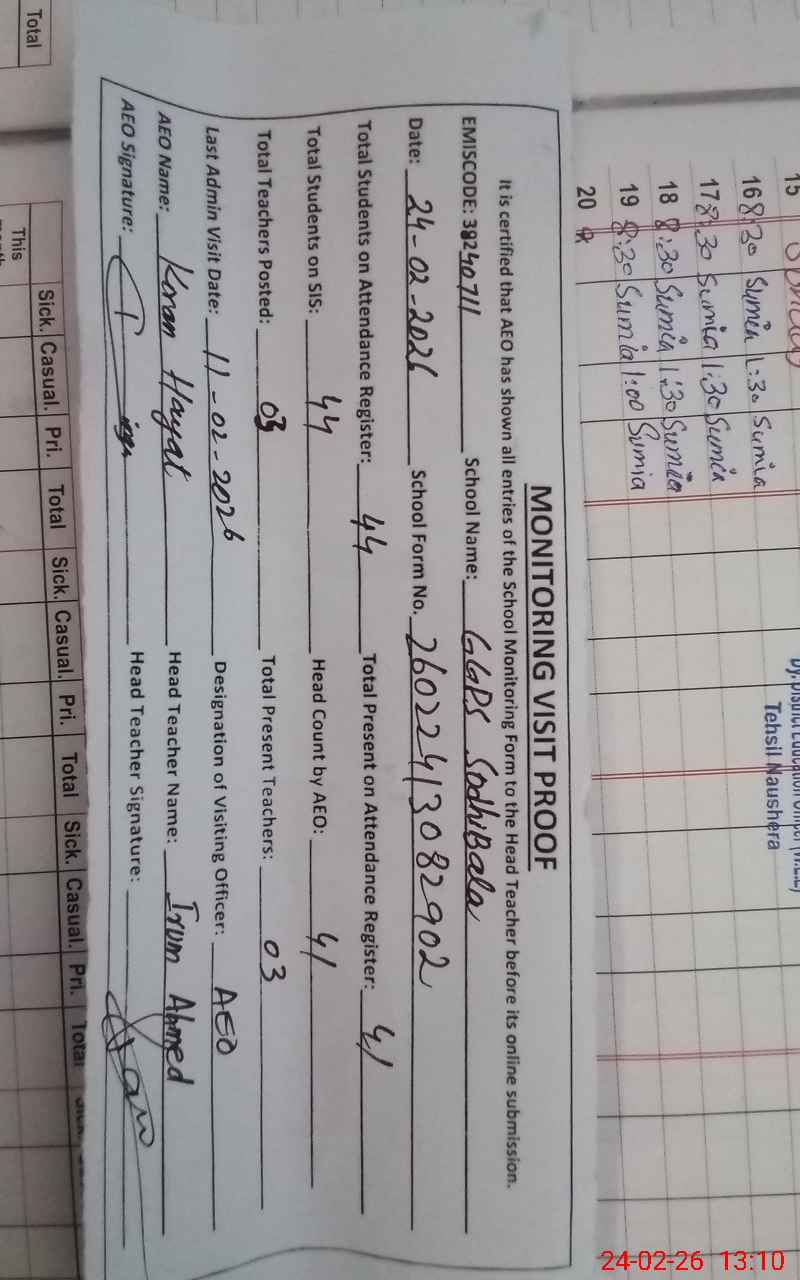 MONITORING VISIT PROOF
It is certified that AEO has shown all entries of the School Monitoring Form to the Head Teacher before its online submission.
EMISCODE: 38240711 School Name: GGPS SodhiBala
Date: 24-02-2026 School Form No. 26022413082902
Total Students on Attendance Register: 44 Total Present on Attendance Register: 41
Total Students on SIS: 44 Head Count by AEO: 41
Total Teachers Posted: 03 Total Present Teachers: 03
Last Admin Visit Date: 11-02-2026 Designation of Visiting Officer: AEO
AEO Name: Kiran Hayat Head Teacher Name: Irum Ahmed
AEO Signature: Head Teacher Signature:
15
16 8:30 Sumia 1:30 Sumia
17 8:30 Sumia 1:30 Sumia
18 8:30 Sumia 1:30 Sumia
19 8:30 Sumia 1:00 Sumia
20
Tehsil Naushera
Total
This
Sick. Casual. Pri. Total Sick. Casual. Pri. Total Sick. Casual. Pri. Total
24-02-26 13:10